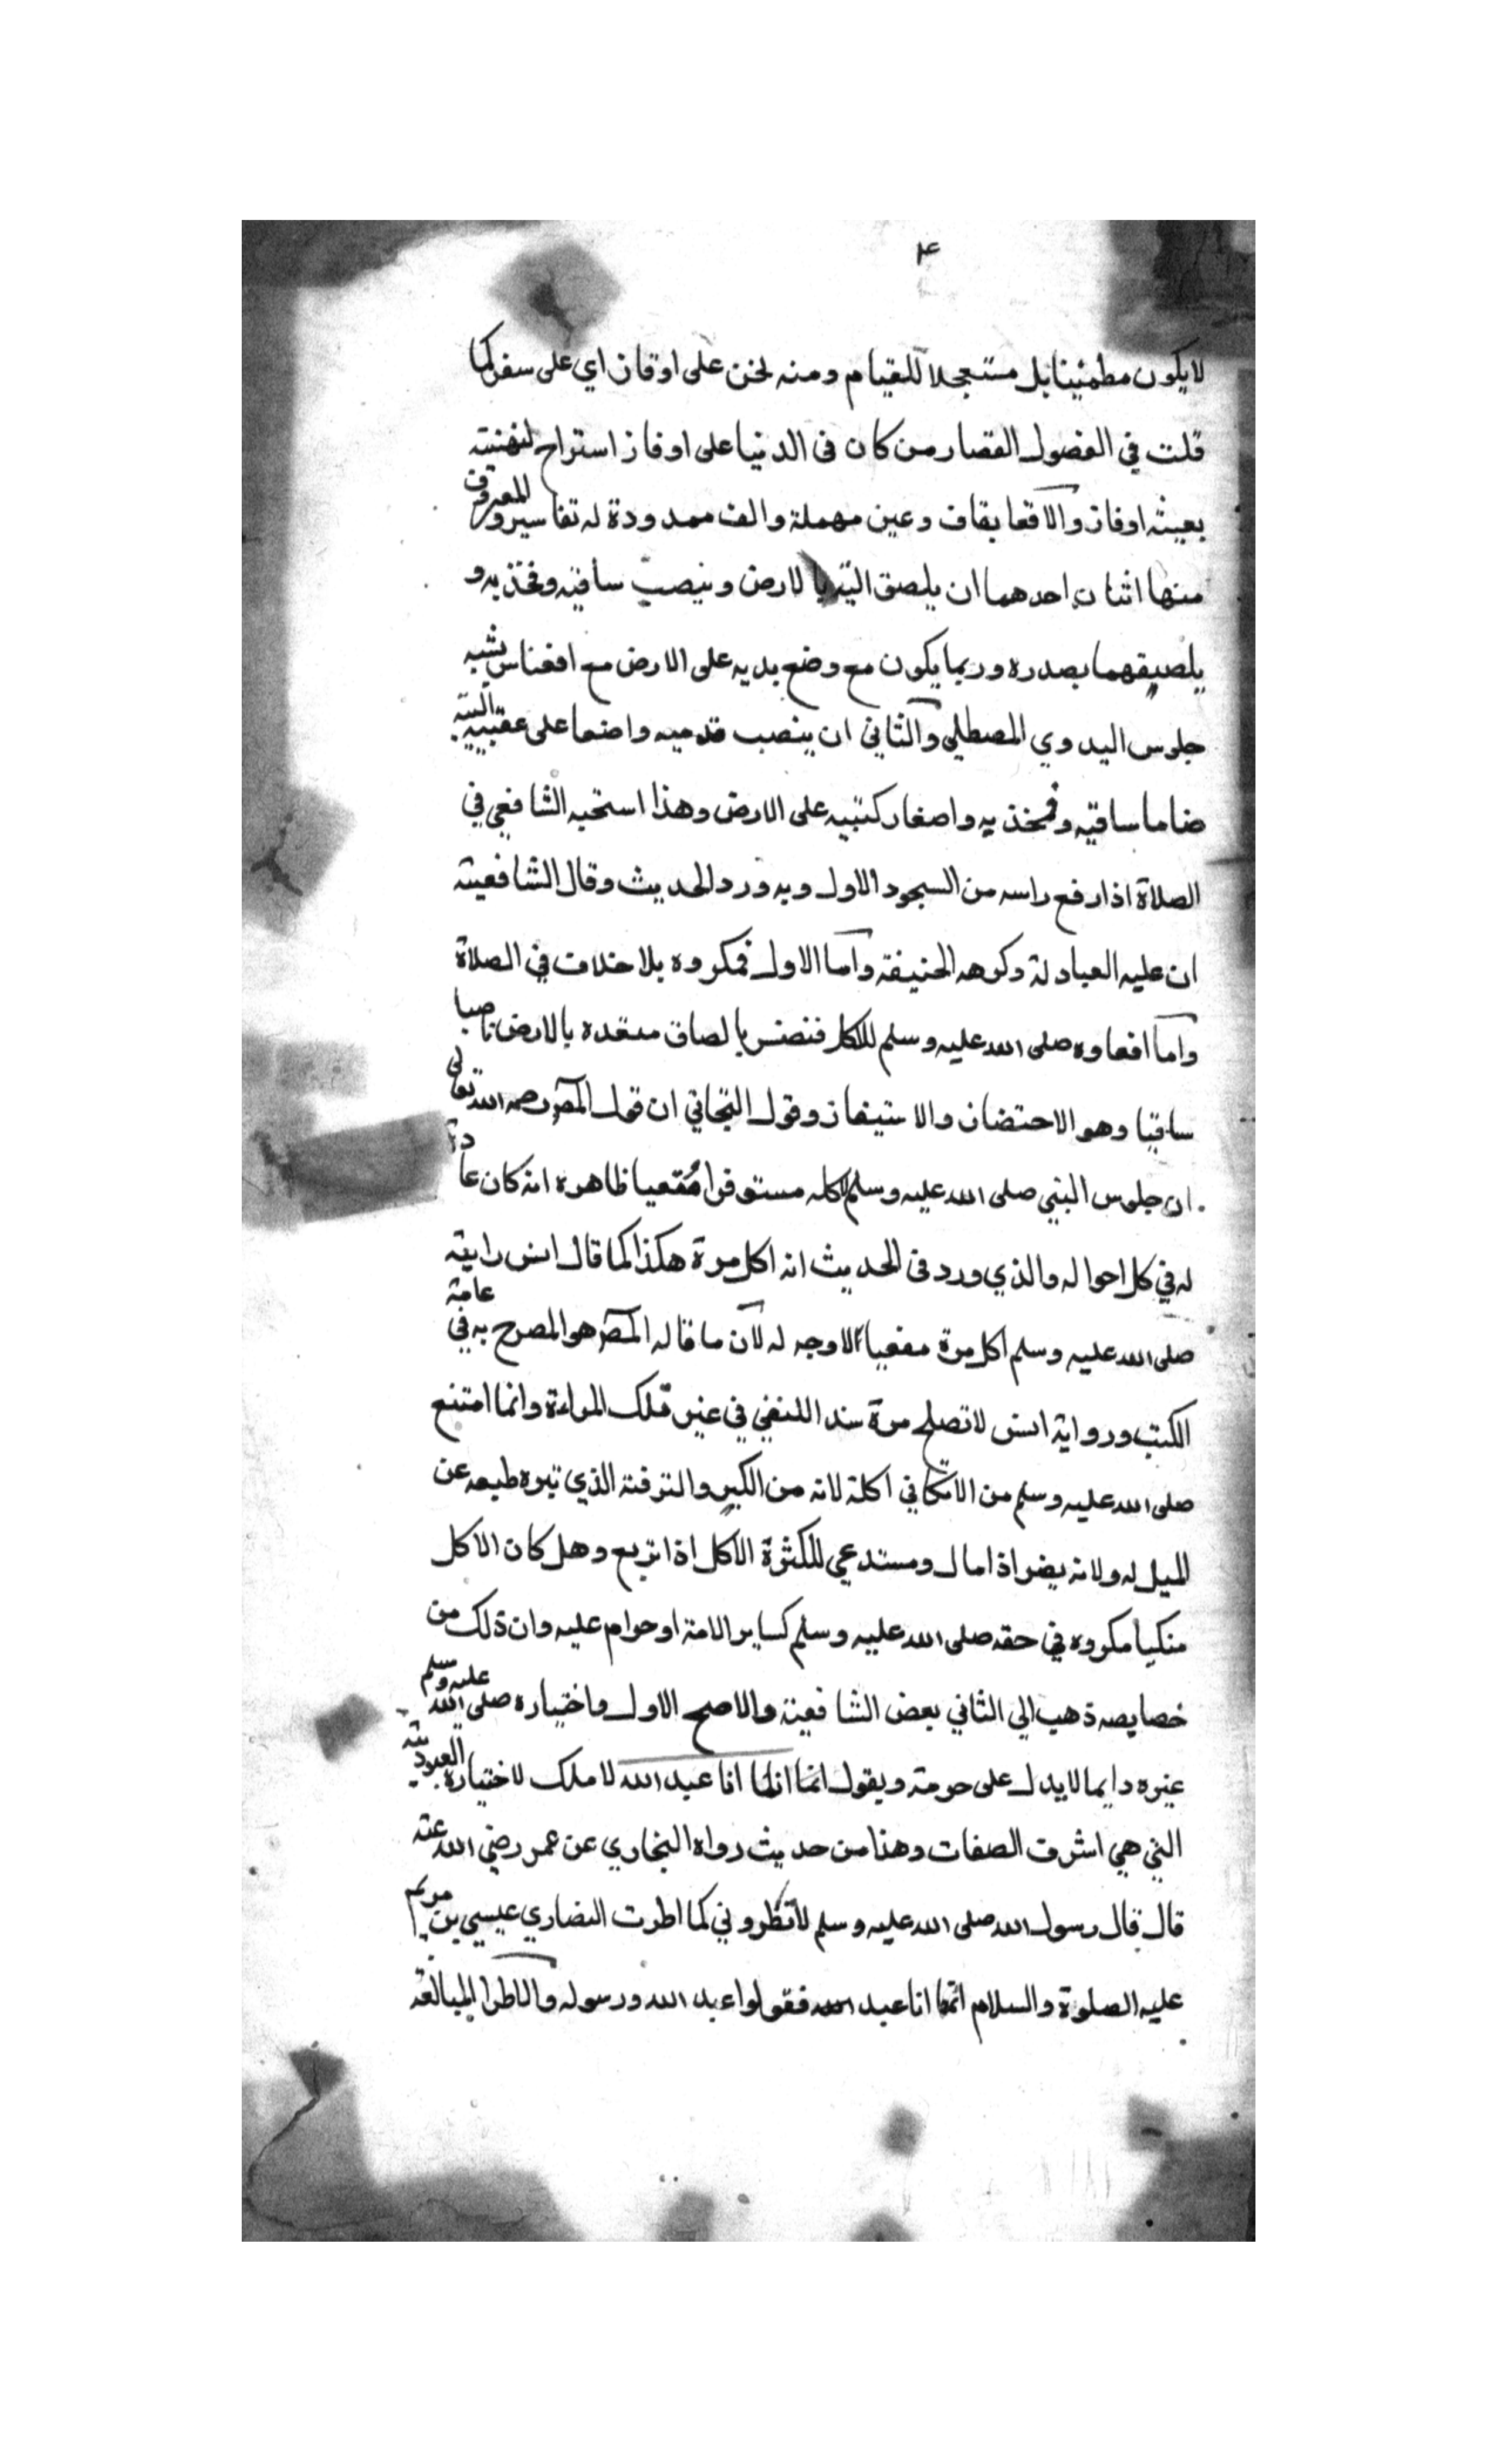 ٤
لا يكون مطمئينا بل مستعجلا للقيام ومنه لخن على اوقاز اي على سفر كما
قلت في الفصول القصار من كان فى الدنيا على اوفاز استراح
بعيشه اوفاز والاقعا بقاف وعين مهملة والف ممدودة له تفاسير والمعروف
منها اثنان احدهما ان يلصق اليتيه بالارض وينصب ساقيه وفخذيه و
يلصيقهما بصدره وربما يكون مع وضع يديه على الارض مع افعناس يشبه
جلوس البدوي المصطلي والثاني ان ينصب قدميه واضعا على عقبيه اليته
ضاما ساقيه وفخذيه واصغار كتبيه على الارض وهذا استحبه الشافعي في
الصلاة اذا رفع راسه من السجود الاول وبه ورد الحديث وقال الشافعية
ان عليه العبادلة وكرهه الحنيفة واما الاول فمكروه بلا خلاف في الصلاة
واما افعاوه صلى الله عليه وسلم للاكل فنفسر بالصاق مقعده بالارض ناصبا
ساقيا وهو الاحتضان والاستيفاز وقول التجاني ان قول المص رحمه الله تعالى
ان جلوس النبي صلى الله عليه وسلم لاكله مستوفزا مقعيا ظاهره انه كان عادة
له في كل احواله والذي ورد فى الحديث انه اكل مرة هكذا كما قال انس رايته
صلى الله عليه وسلم اكل مرة مقعيا الاوجه له لان ما قاله المص هو المصرح به في عامة
الكتب ورواية انس لا تصلح مرة سندا للنفي في غير تلك المرة وانما امتنع
صلى الله عليه وسلم من الاتكا في اكله لانه من الكبر والترفة الذي تبره طبعه عن
الميل له ولانه يضر اذا مال ومستدعي للكثرة الاكل اذا تربع وهل كان الاكل
متكيا مكروه في حقه صلى الله عليه وسلم كساير الامة او حرام عليه وان ذلك من
خصايصه ذهب الي الثاني بعض الشافعية والاصح الاول واختياره صلى الله عليه وسلم
غيره دايما لا يدل على حرمته ويقول انما انا عبد الله لا ملك لاختياره العبودية
التي هي اشرف الصفات وهنا من حديث رواه البخاري عن عمر رضي الله عنه
قال قال رسول الله صلى الله عليه وسلم لا تطروني كما اطرت النصاري عيسي بن مريم
عليه الصلوة والسلام انما انا عبد الله فقولوا عبد الله ورسوله والاطرا المبالغة